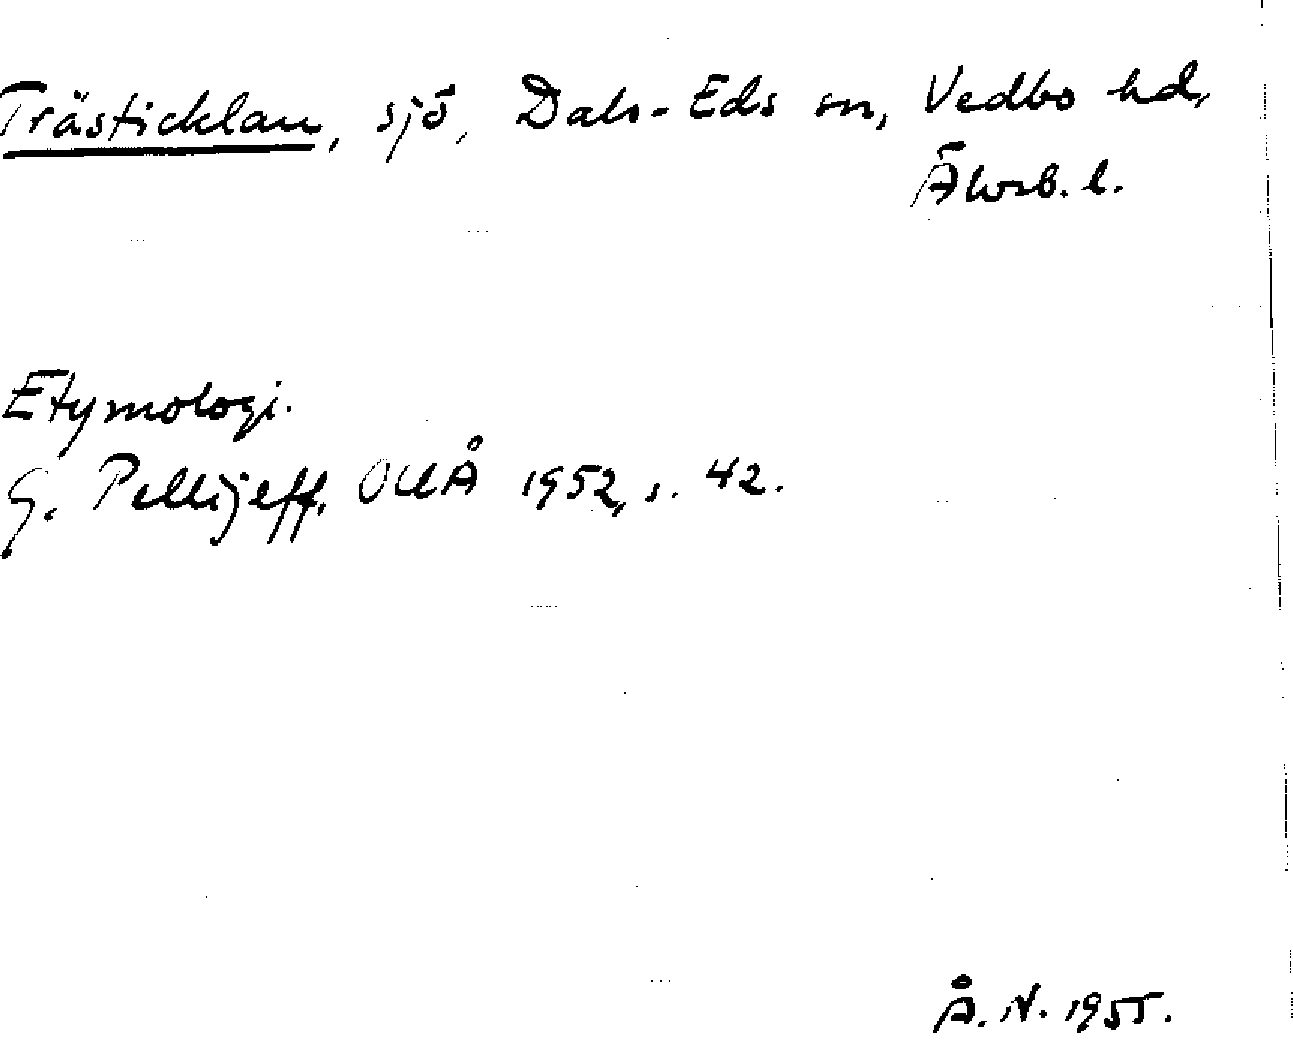 Trästicklan, sjö, Dals-Eds sn, Vedbo hd,
Älvsb. l.
Etymologi.
G. Pellijeff, OUÅ 1952, s. 42.
Å. N. 1955.